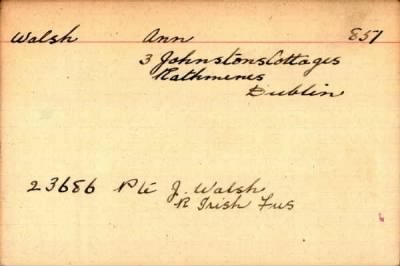 Walsh Ann 851
3 Johnstons Cottages
Rathmines
Dublin
23686 Pte J. Walsh
R Irish Fus